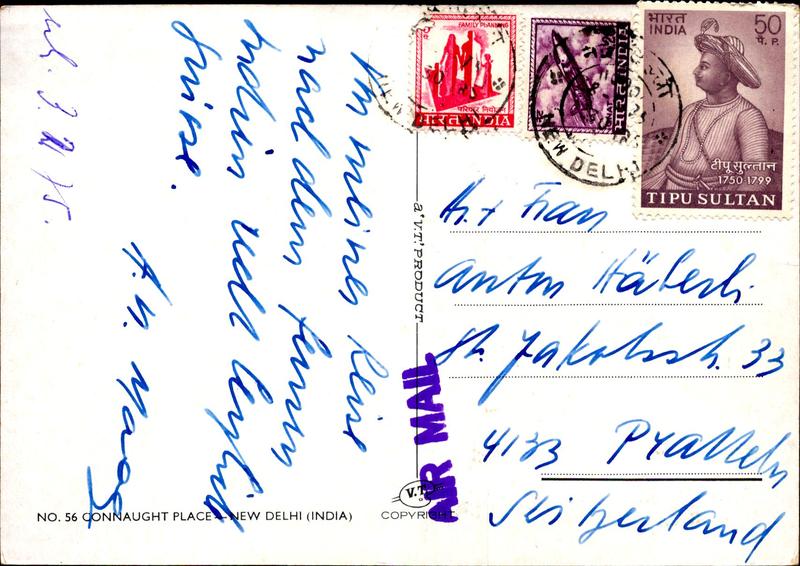 Von meiner Reise
nach dem fernen
Indien recht herzliche
Grüsse.
NO. 56 CONNAUGHT PLACE - NEW DELHI (INDIA)
a 'V.T.' PRODUCT
V.T.
COPYRIGHT
AIR MAIL
FAMILY PLANNING
परिवार नियोजन
भारत INDIA
भारत INDIA
NEW DELHI
भारत
INDIA
50
पै. P.
टीपू सुल्तान
1750-1799
TIPU SULTAN
Hr. + Frau
Anton Häberli
St. Jakobsstr. 33
4133 Pratteln
Switzerland